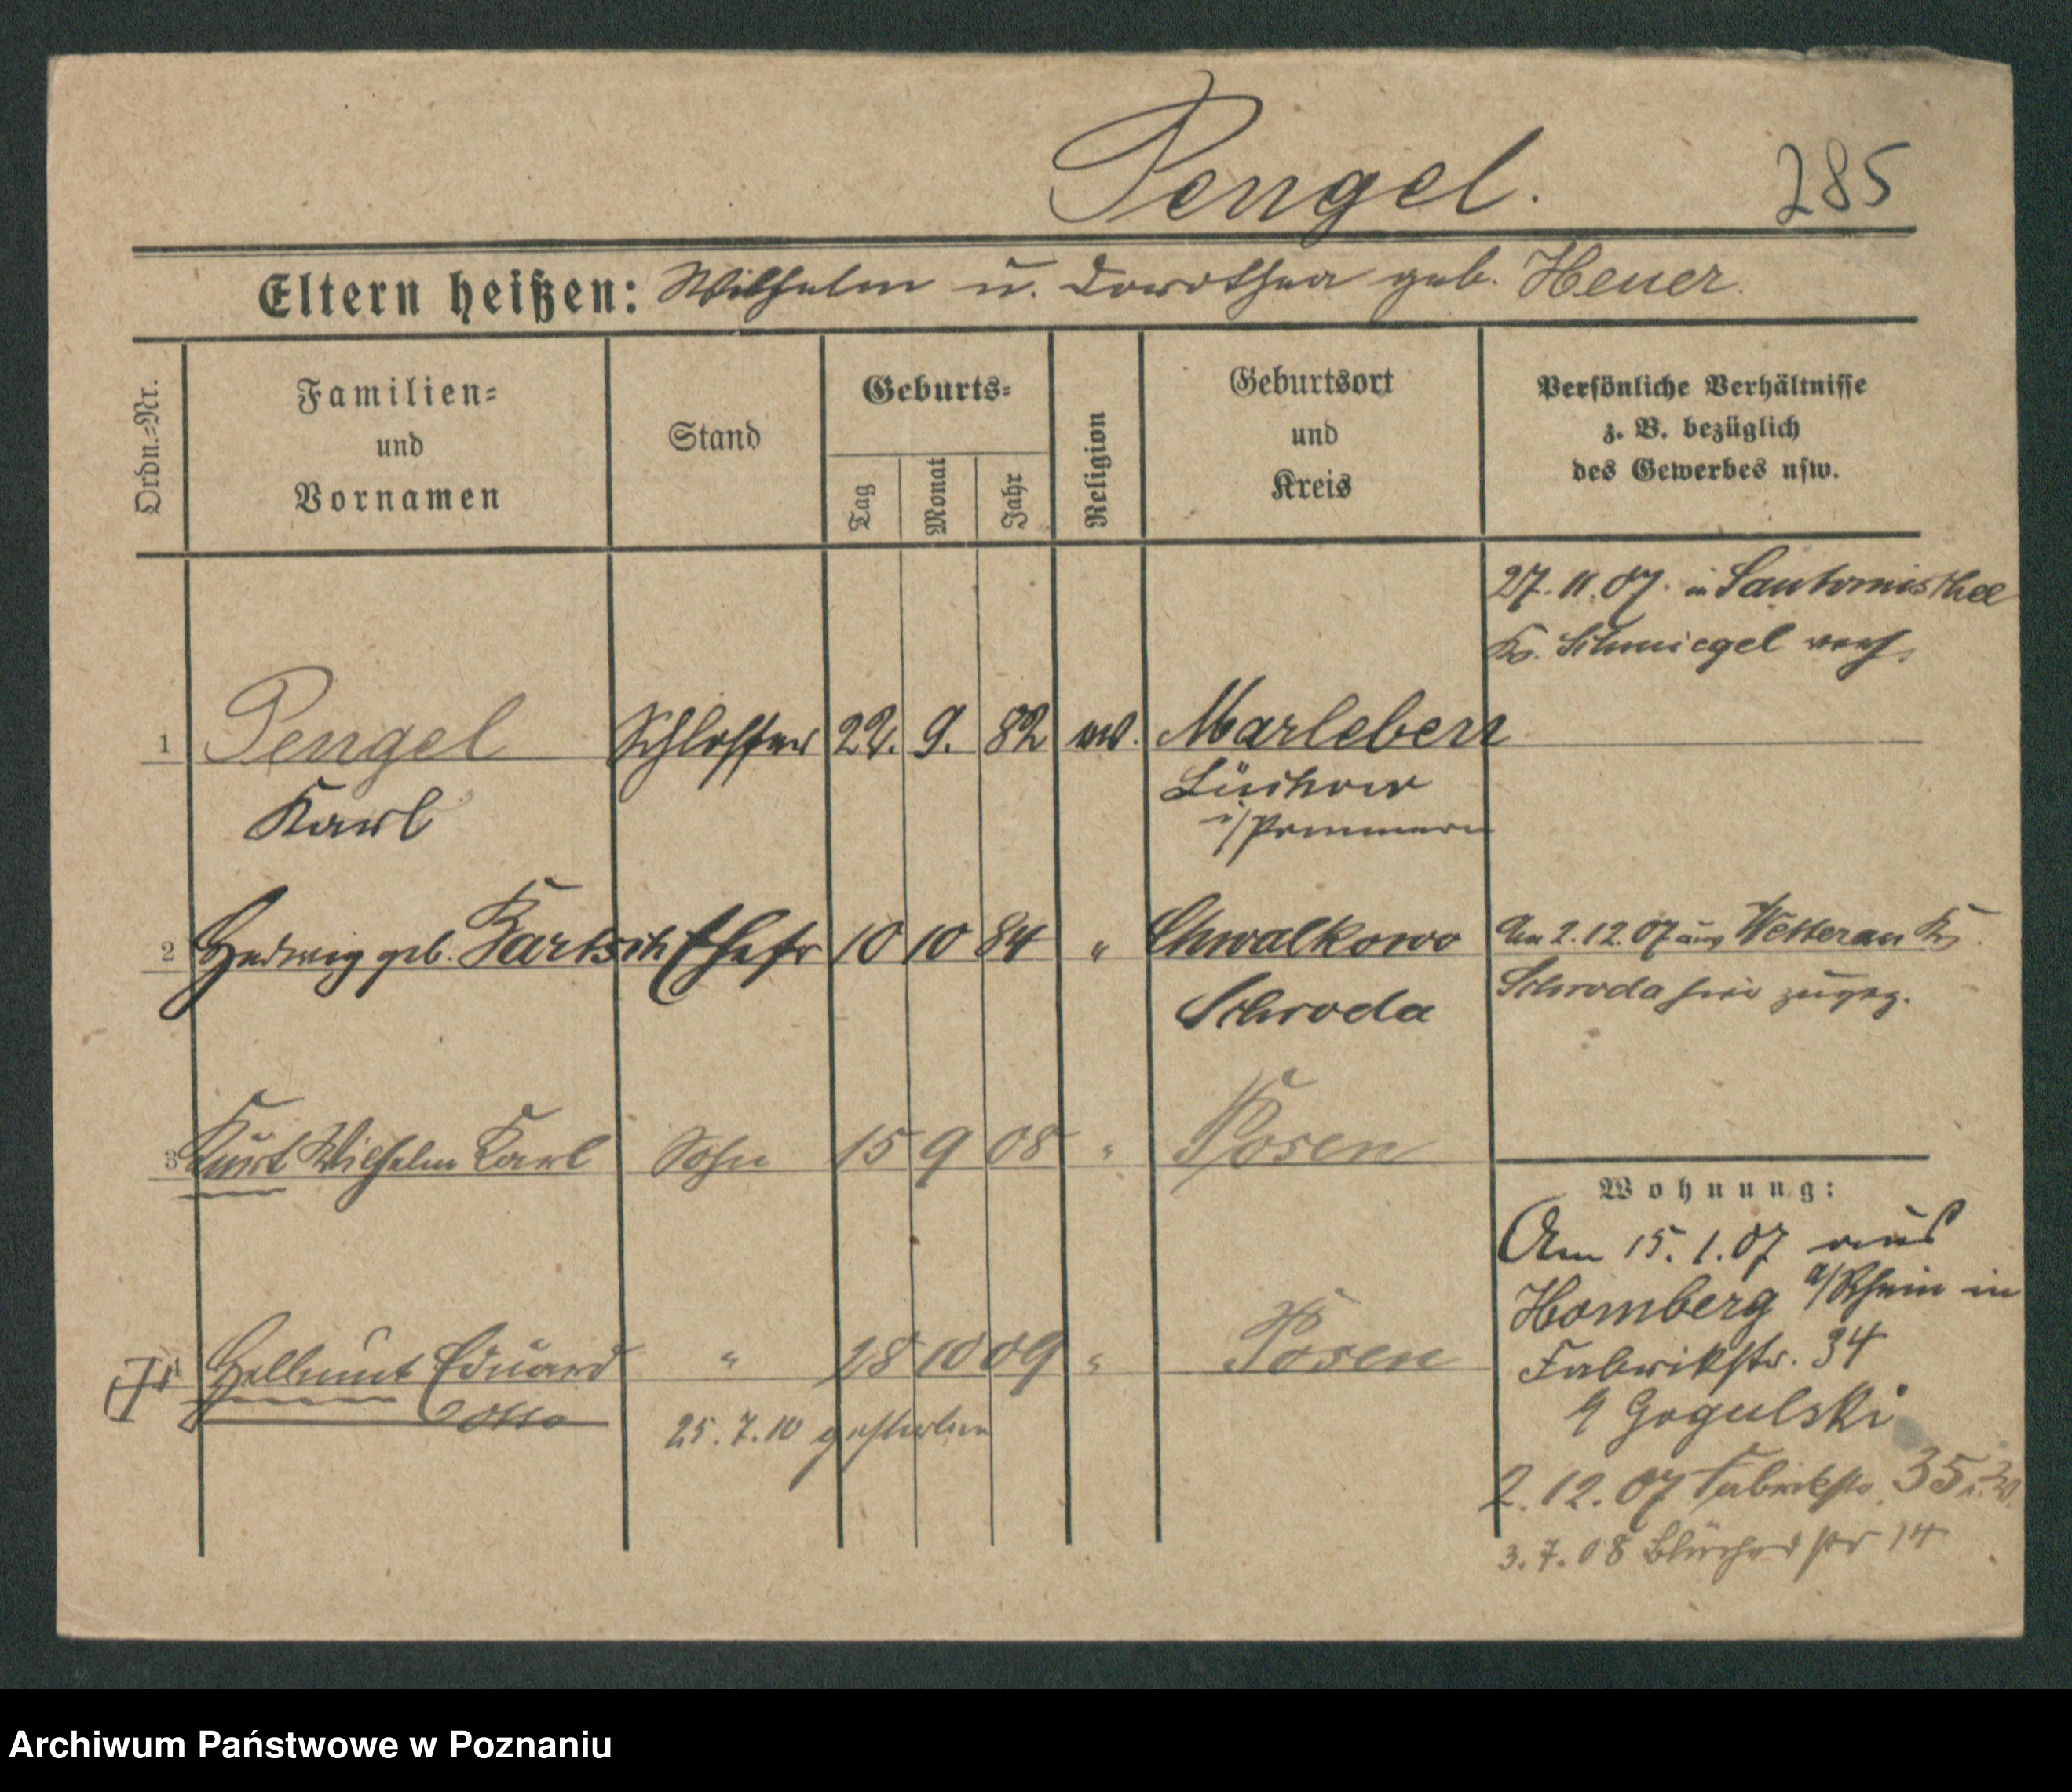 Pengel. 285
Eltern heißen: Wilhelm u. Dorothea geb. Heuer.
Ordn.=Nr.
Familien=
und
Vornamen
Stand
Geburts=
Tag
Monat
Jahr
Religion
Geburtsort
und
Kreis
Persönliche Verhältnisse
z. B. bezüglich
des Gewerbes usw.
27. 11. 07. in
Kr. Schmiegel verh.
1 Pengel Schlosser 22. 9. 82 ev.
Karl
Lüchow
i/Pommern
2 Hedwig geb. Bartsch Ehefr 10 10 84 " Chwalkowo
Schroda
Am 2. 12. 07 aus Kr.
Schroda hier zugez.
3 Kurt Wilhelm Karl Sohn 15 9 08 " Posen
4 Hellmut Eduard " 28 10 09 " Posen
Otto
25. 7. 10 gestorben
Wohnung:
Am 15. 1. 07 aus
Homberg a/Rhein in
Fabrikstr. 34
Gogulski
2. 12. 07 Fabrikstr. 35
3. 7. 08 Blücherstr 14
Archiwum Państwowe w Poznaniu